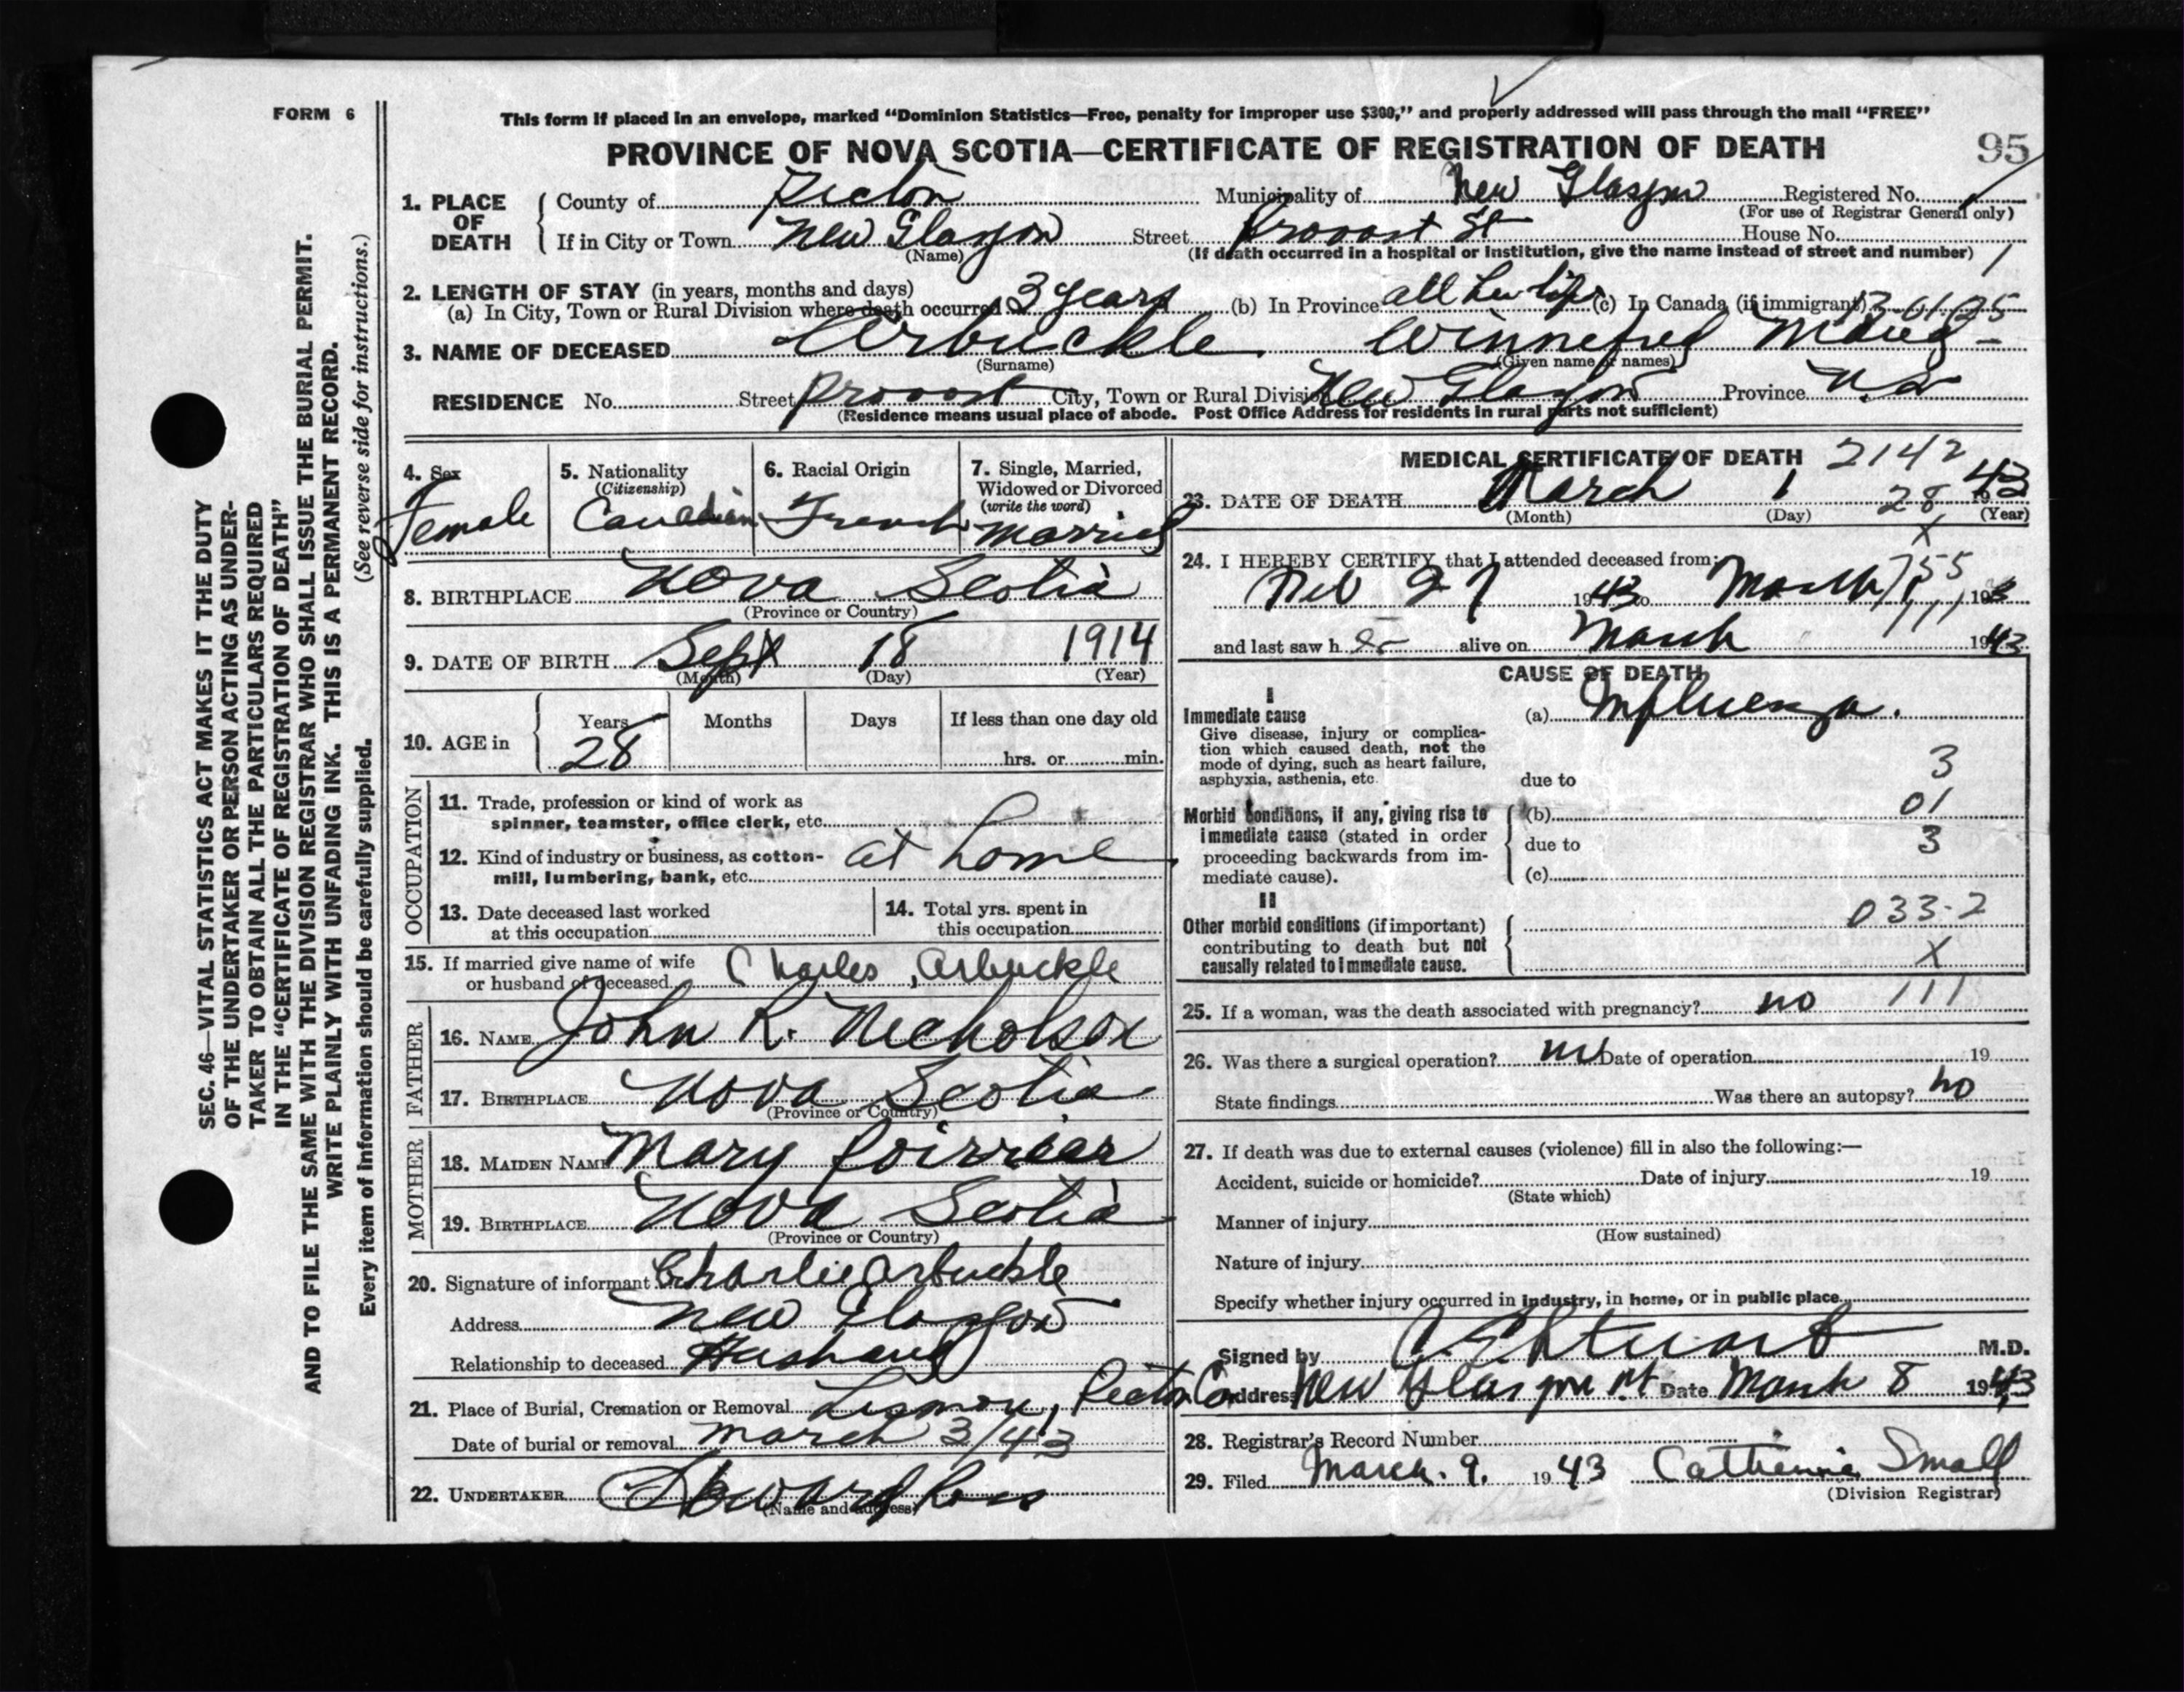 FORM 6
This form if placed in an envelope, marked "Dominion Statistics—Free, penalty for improper use $300," and properly addressed will pass through the mail "FREE"
PROVINCE OF NOVA SCOTIA—CERTIFICATE OF REGISTRATION OF DEATH
95
1. PLACE OF DEATH
County of Pictou Municipality of New Glasgow Registered No.
(For use of Registrar General only)
If in City or Town New Glasgow Street Provost St House No.
(Name) (If death occurred in a hospital or institution, give the name instead of street and number) 1
2. LENGTH OF STAY (in years, months and days)
(a) In City, Town or Rural Division where death occurred 3 years (b) In Province all her life (c) In Canada (if immigrant)
3. NAME OF DECEASED Arbuckle Winnefred
(Surname) (Given name or names)
RESIDENCE No. Street Provost City, Town or Rural Division New Glasgow Province N.S
(Residence means usual place of abode. Post Office Address for residents in rural parts not sufficient)
4. Sex
Female
5. Nationality
(Citizenship)
Canadian
6. Racial Origin
French
7. Single, Married,
Widowed or Divorced
(write the word)
Married
8. BIRTHPLACE Nova Scotia
(Province or Country)
9. DATE OF BIRTH Sept 18 1914
(Month) (Day) (Year)
10. AGE in
Years Months Days If less than one day old
28 hrs. or min.
OCCUPATION
11. Trade, profession or kind of work as
spinner, teamster, office clerk, etc.
12. Kind of industry or business, as cotton-
mill, lumbering, bank, etc. at home
13. Date deceased last worked
at this occupation
14. Total yrs. spent in
this occupation
15. If married give name of wife
or husband of deceased Charles Arbuckle
FATHER
16. NAME John R. Nicholson
17. BIRTHPLACE Nova Scotia
(Province or Country)
MOTHER
18. MAIDEN NAME Mary Poirriear
19. BIRTHPLACE Nova Scotia
(Province or Country)
20. Signature of informant Charlie Arbuckle
Address New Glasgow
Relationship to deceased Husband
21. Place of Burial, Cremation or Removal Lismore, Pictou Co
Date of burial or removal March 3/43
22. UNDERTAKER
(Name and address)
MEDICAL CERTIFICATE OF DEATH 2142
23. DATE OF DEATH March 1 1943
28
(Month) (Day) (Year)
X
24. I HEREBY CERTIFY that I attended deceased from:
Feb 27 1943 to March 1 19
and last saw h er alive on March 1943
CAUSE OF DEATH
I
Immediate cause
Give disease, injury or complica-
tion which caused death, not the
mode of dying, such as heart failure,
asphyxia, asthenia, etc.
(a) Influenza.
due to
3
Morbid conditions, if any, giving rise to
immediate cause (stated in order
proceeding backwards from im-
mediate cause).
(b)
01
due to
3
(c)
II
Other morbid conditions (if important)
contributing to death but not
causally related to immediate cause.
033-2
X
25. If a woman, was the death associated with pregnancy? no 111
26. Was there a surgical operation? no Date of operation 19
State findings Was there an autopsy? no
27. If death was due to external causes (violence) fill in also the following:—
Accident, suicide or homicide? Date of injury 19
(State which)
Manner of injury
(How sustained)
Nature of injury
Specify whether injury occurred in industry, in home, or in public place
Signed by Stuart M.D.
Address New Glasgow Date March 8 1943
28. Registrar's Record Number
29. Filed March. 9. 1943 Catherine Small
(Division Registrar)
SEC. 46—VITAL STATISTICS ACT MAKES IT THE DUTY
OF THE UNDERTAKER OR PERSON ACTING AS UNDER-
TAKER TO OBTAIN ALL THE PARTICULARS REQUIRED
IN THE "CERTIFICATE OF REGISTRATION OF DEATH"
AND TO FILE THE SAME WITH THE DIVISION REGISTRAR WHO SHALL ISSUE THE BURIAL PERMIT.
WRITE PLAINLY WITH UNFADING INK. THIS IS A PERMANENT RECORD.
Every item of information should be carefully supplied. (See reverse side for instructions.)